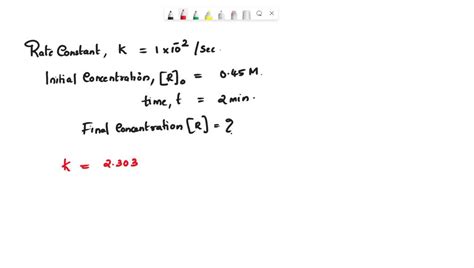 Rate Constant, K = 1×10⁻² /Sec.
Initial Concentration, [R]₀ = 0.45 M.
time, t = 2 min.
Final Concentration [R] = ?
K = 2.303